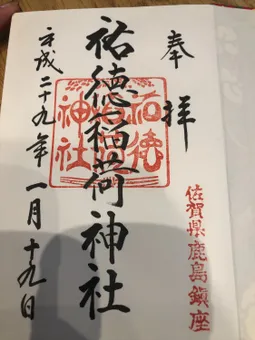 奉拝
佐賀県鹿島鎮座
祐徳稲荷神社
祐徳稲荷神社
平成二十九年一月十九日